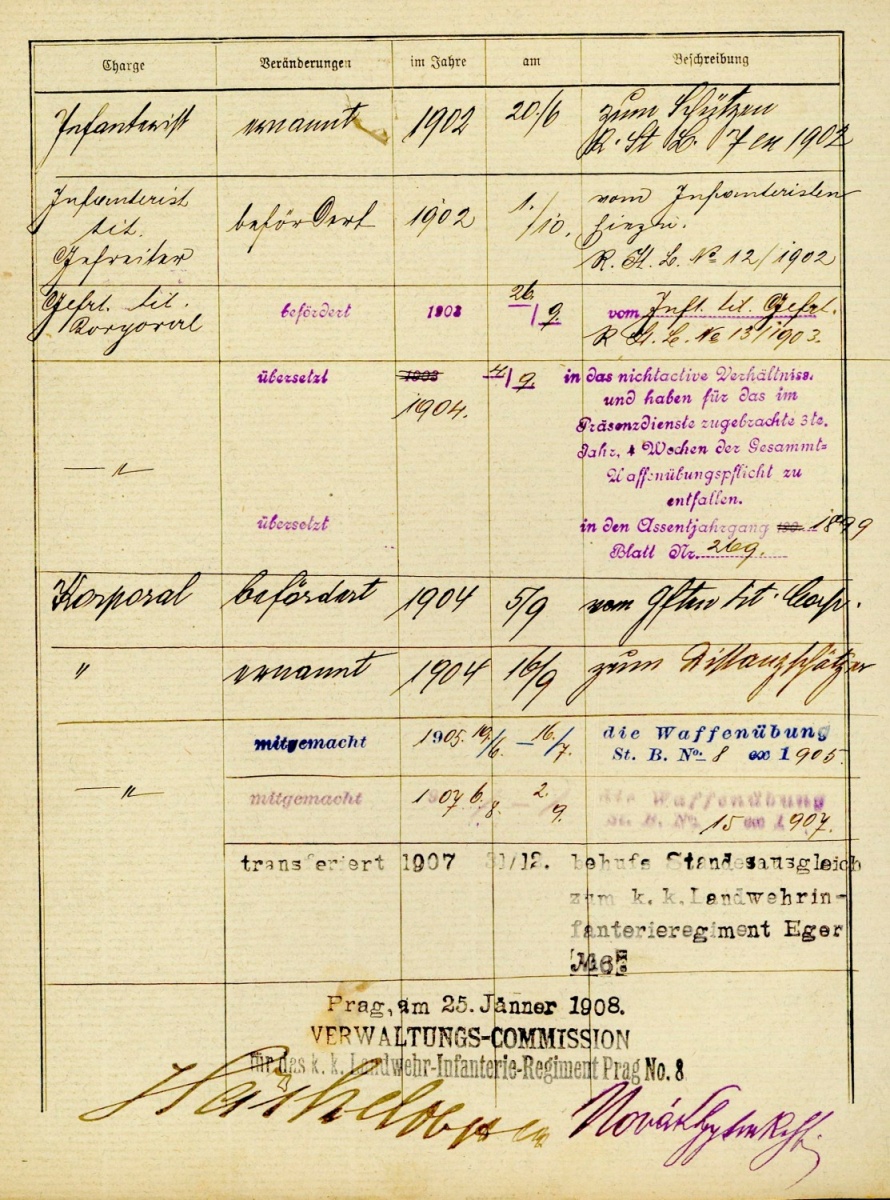 Charge Veränderungen im Jahre am Beschreibung
Infanterist ernannt 1902 20./6 zum Schützen
R. St. L. 7 ex 1902
Infanterist vom Infanteristen
tit. befördert 1902 1./10.
Gefreiter R. St. L. No 12/1902
Gefrt. tit. befördert 1903 26/9. vom Inft. tit. Gefrt.
Korporal R St. L. No 13/1903.
übersetzt 1903 4/9. in das nichtactive Verhältniss.
1904. und haben für das im
Präsenzdienste zugebrachte 3te.
Jahr, 4 Wochen der Gesammt=
Waffenübungspflicht zu
entfallen.
übersetzt in den Assentjahrgang 1899
Blatt Nr. 269.
Korporal befördert 1904 5/9 vom Gften tit. Corp.
" ernannt 1904 16/9 zum Distanzschätzer
mitgemacht 1905. 19/6. – 16./7. die Waffenübung
St. B. No. 8 ex 1905.
mitgemacht 1907. 6./8. – 2./9. die Waffenübung
St. B. No. 15 ex 1907.
transferiert 1907 31/12. behufs Standesausgleich
zum k. k. Landwehrin-
fanterieregiment Eger
No 6.
Prag, am 25. Jänner 1908.
VERWALTUNGS-COMMISSION
für das k. k. Landwehr-Infanterie-Regiment Prag No. 8